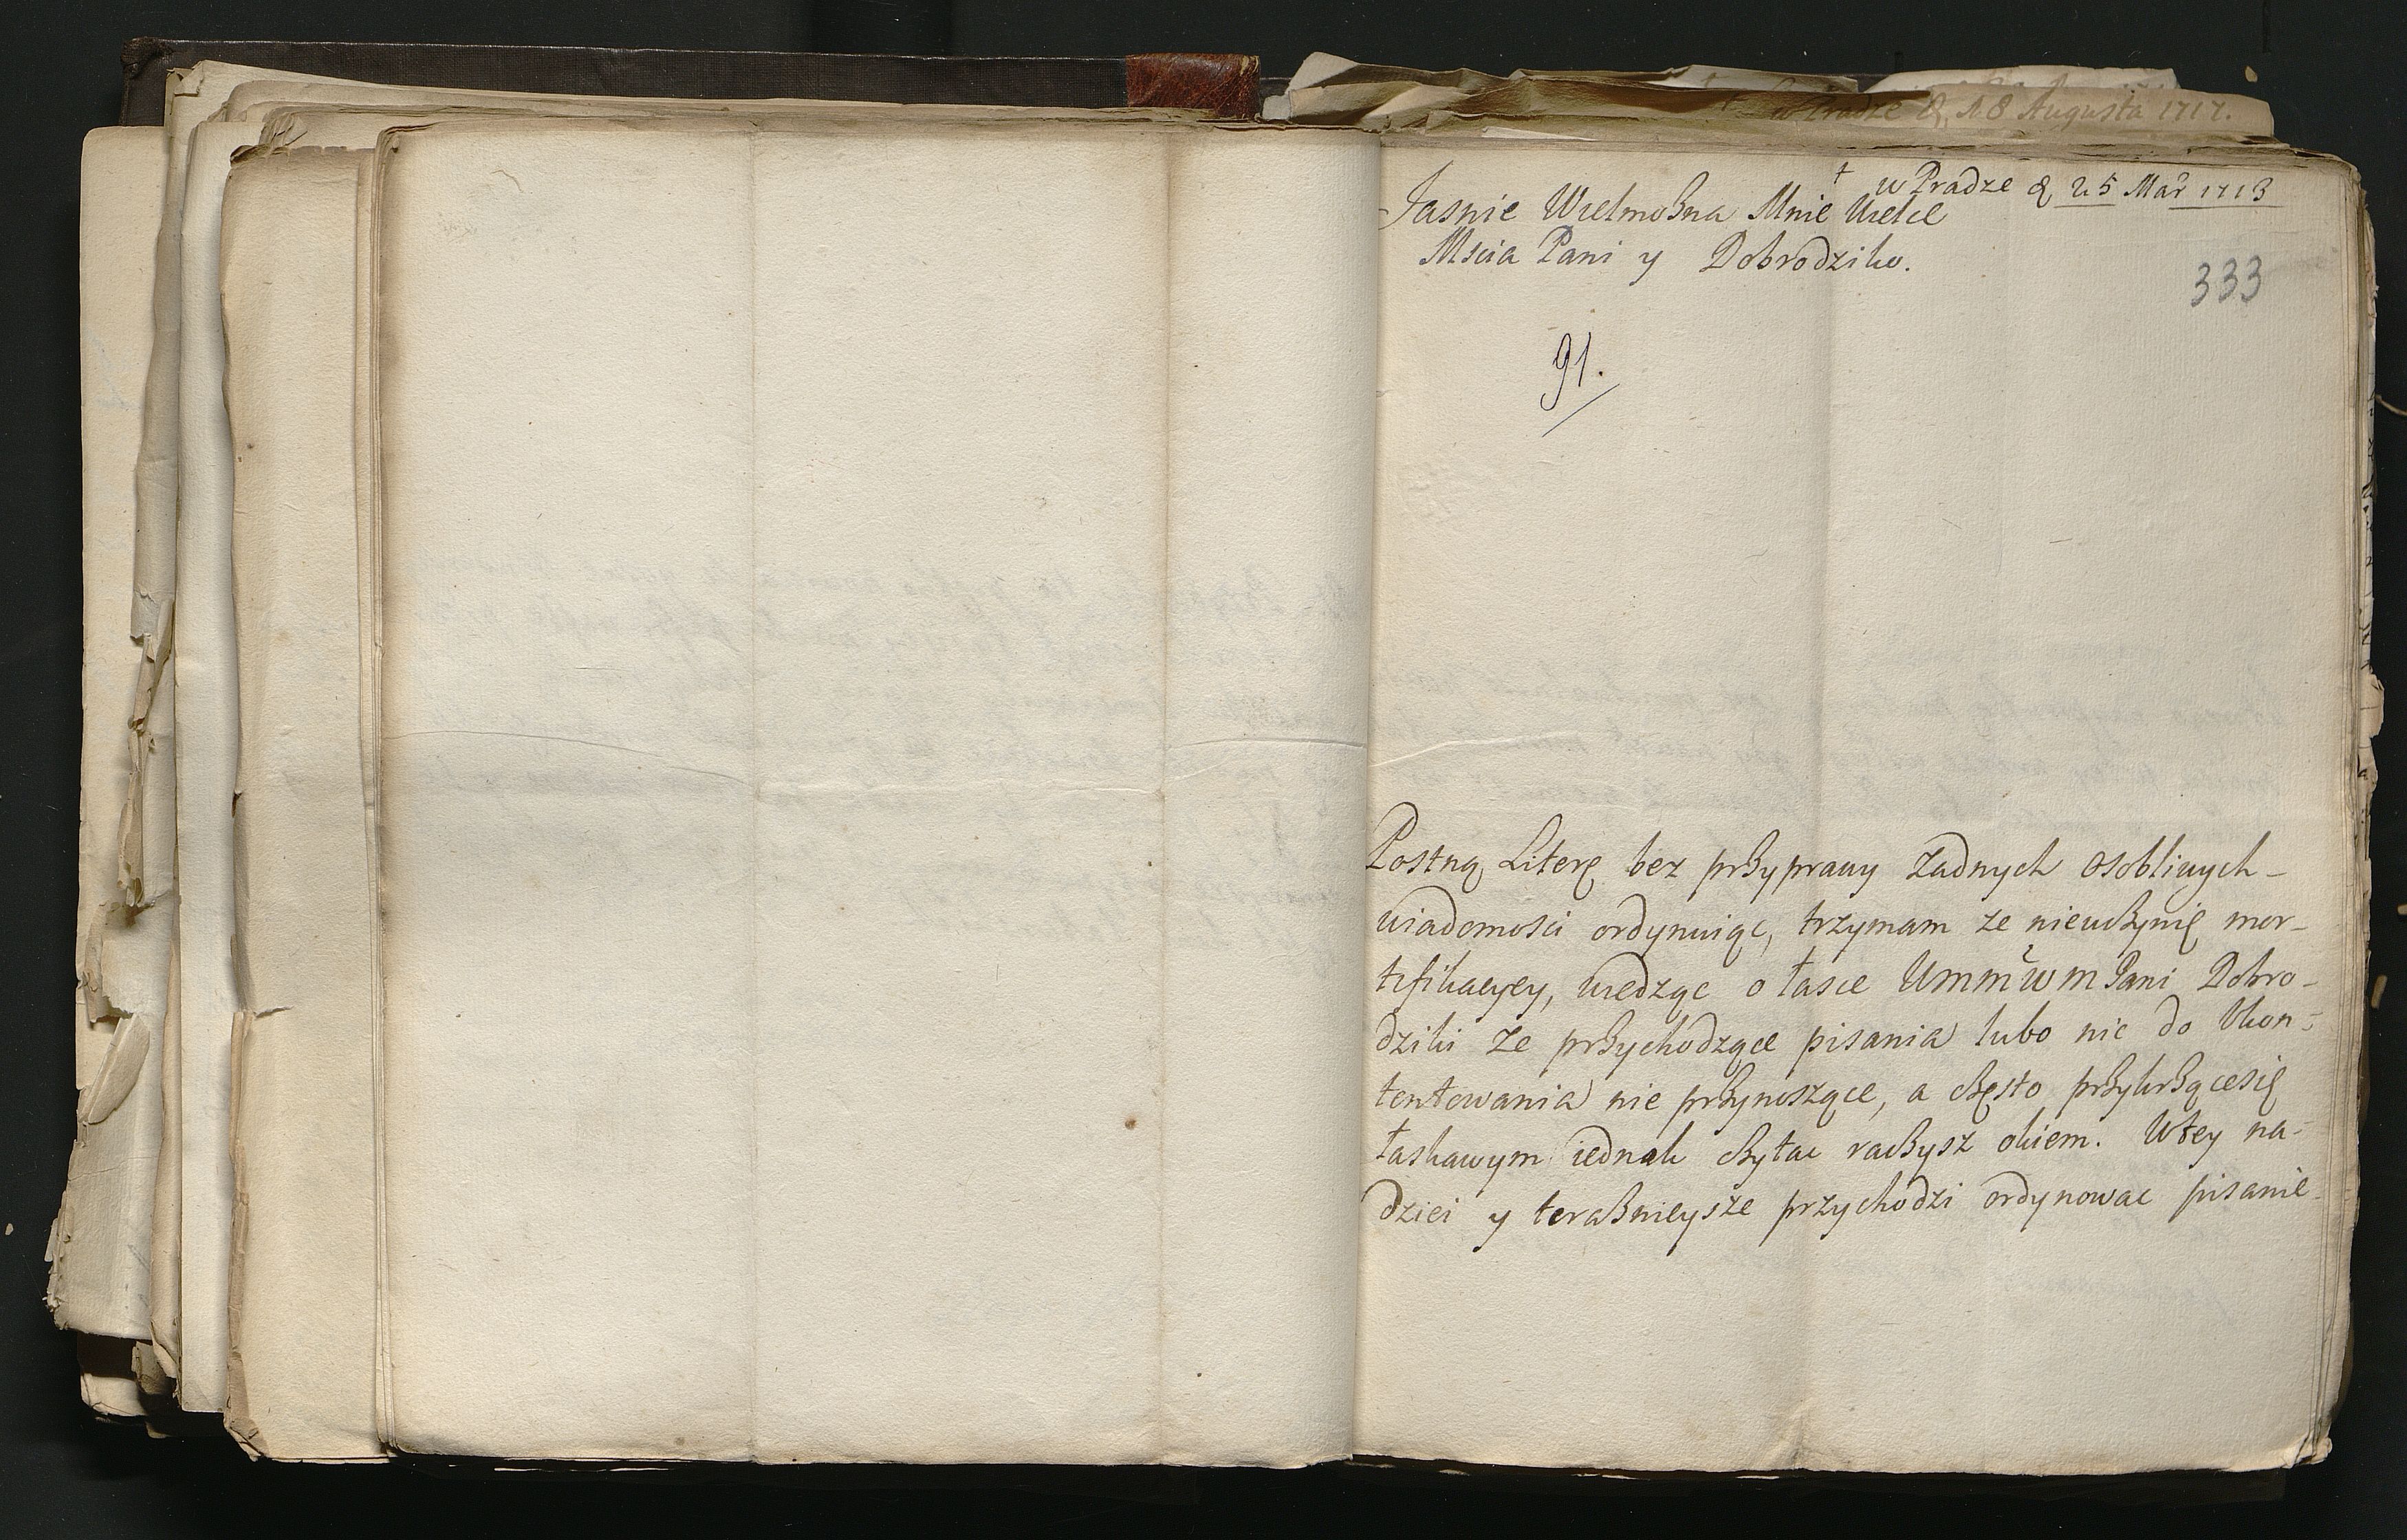 w Pradze d. 18 Augusta 1717.
† w Pradze d 25 Mar 1713
Jasnie Wielmożna Mnie Wielce
Mscia Pani y Dobrodziko.
333
91.
Postną Literę bez przyprawy żadnych osobliwych
wiadomosci ordynuiąc, trzymam ze nieuczynię mor-
tifikacyey, wiedząc o łasce UmmWM Pani Dobro-
dziki że przychodzące pisania lubo nic do Ukon-
tentowania nie przynoszące, a często przykrzącesię
łaskawym iednak czytac raczysz okiem. Wtey na-
dziei y teraznieysze przychodzi ordynowac pisanie